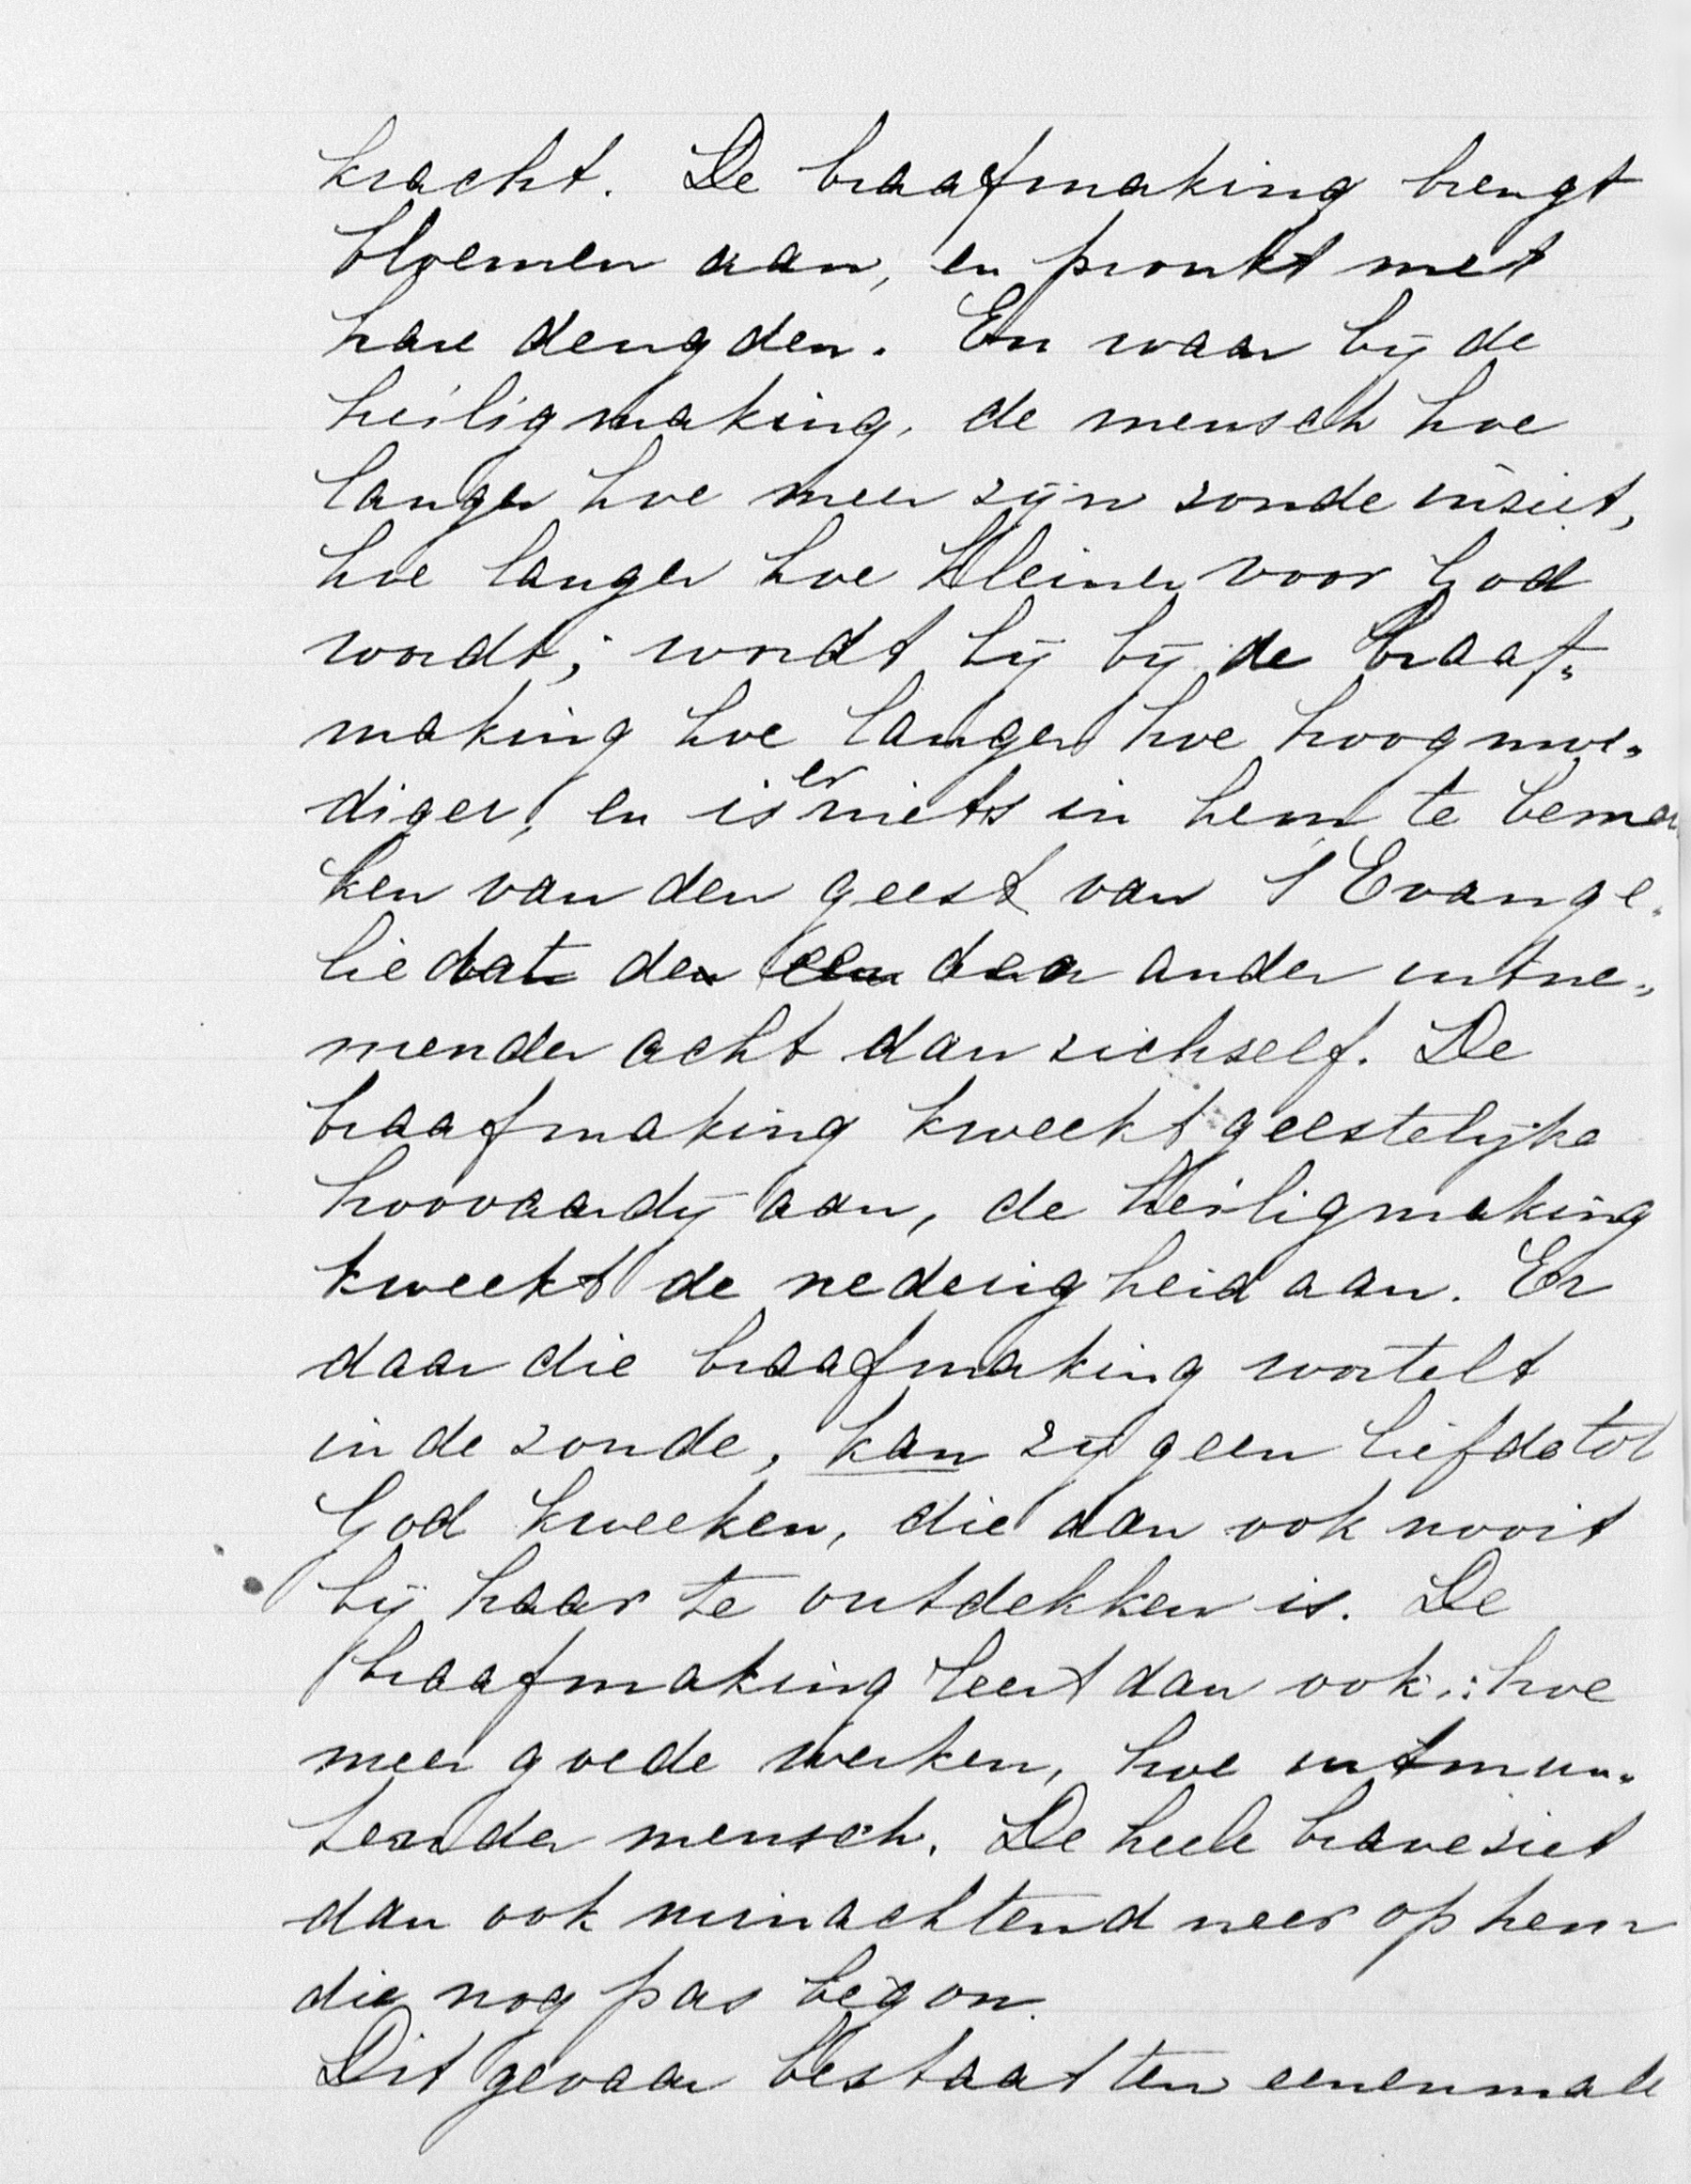 kracht. De braafmaking brengt
bloemen aan, en pronkt met
hare deugden. En waar bij de
heiligmaking, de mensch hoe
langer hoe meer zijn zonde inziet,
hoe langer hoe kleiner voor God
wordt; wordt hij bij de braaf„
making hoe langer hoe hoogmoe„
diger, en is er niets in hem te bemer
ken van den geest van 't Evange„
lie dat de een den ander uitne„
mender acht dan zichself. De
braafmaking kweekt geestelijke
hoovaardij aan, de heiligmaking
kweekt de nederigheid aan. En
daar die braafmaking wortelt
in de zonde, kan zij geen liefde tot
God kweeken, die dan ook nooit
bij haar te ontdekken is. De
braafmaking leert dan ook: hoe
meer goede werken, hoe uitmun„
tender mensch. De heele brave ziet
dan ook minachtend neer op hem
die nog pas begon.
Dit gevaar bestaat ten eenenmale